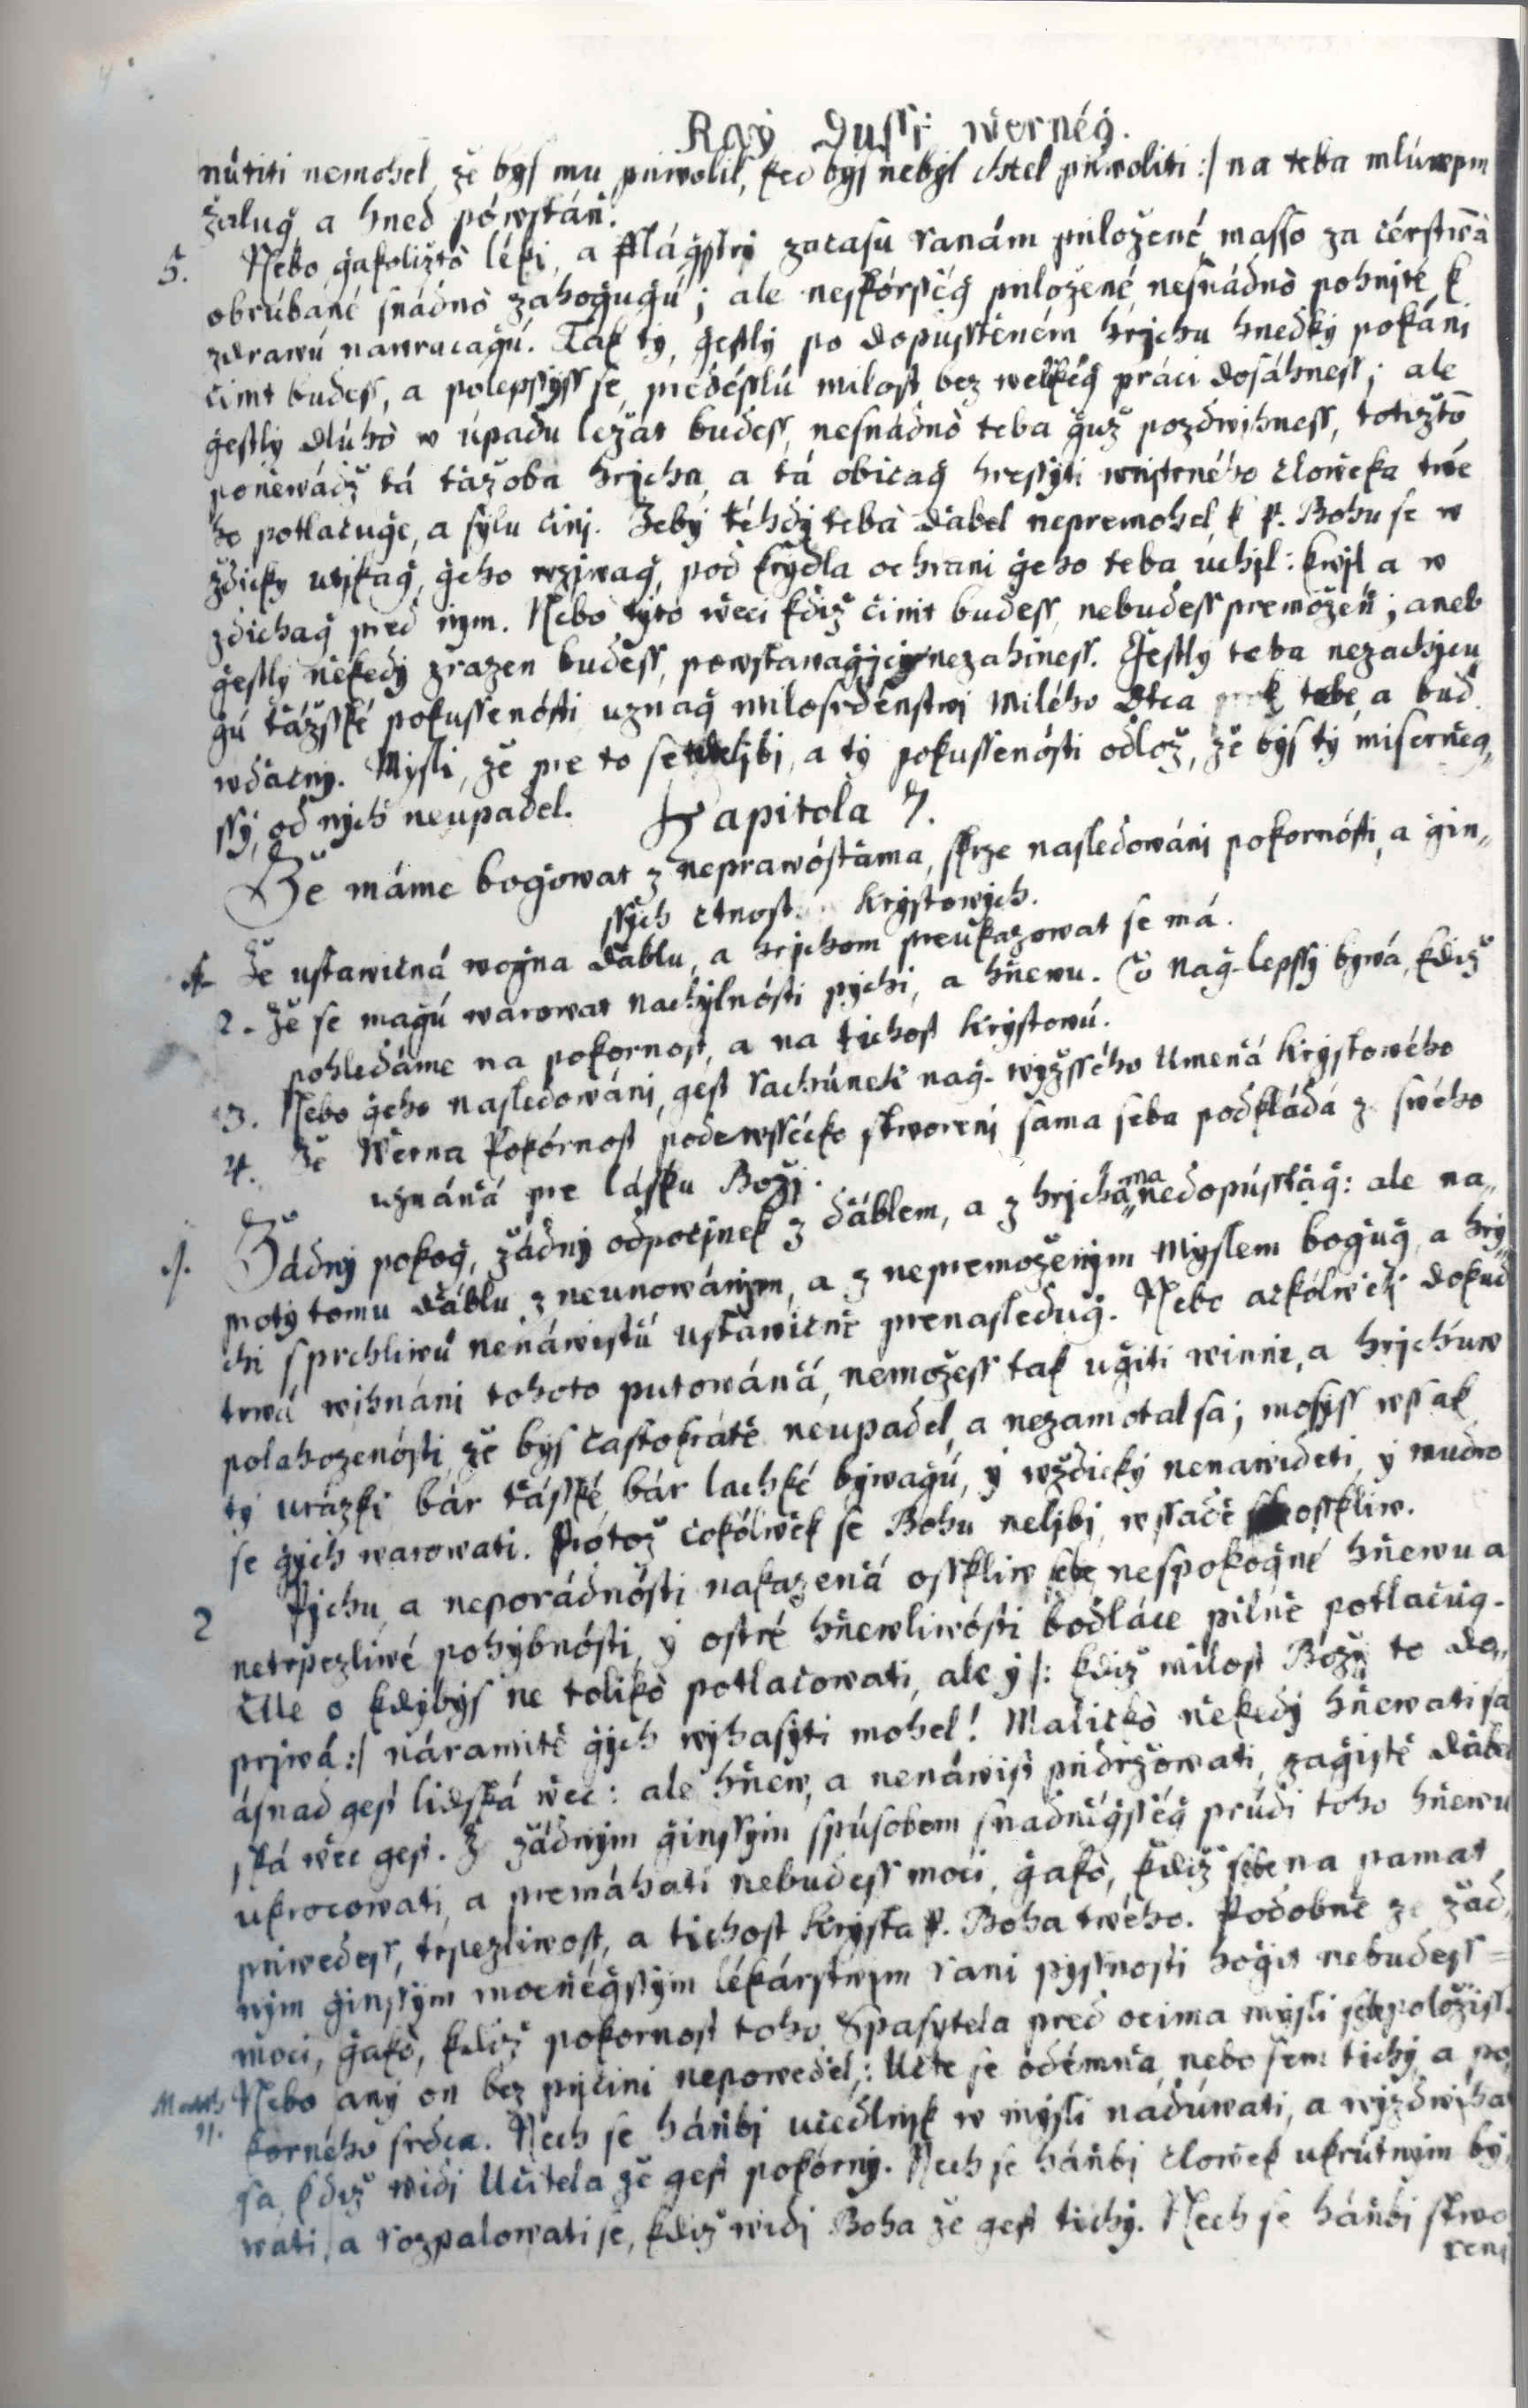 Rag Dussi werneg.
nútiti nemohel, že bys mu priwolil, keď bys nebyl chtel priwoliti :/ na teba mlúwym
žalug a hneď powstáň.
5. Nebo gakoližto léki, a fflágstry začasu ranám priložené, masso za čérstwa
obrúbané snádno zahogugú; ale neskórsség priložené, nesnádno pohnité k
zdrawú nawracagú. Tak ty, gestly po dopusstěném hrjchu hneďky pokáni
činit budess, a polepssyss se, predésslú milost bez welikég práci dosáhness; ale
gestly dlúho w úpadu ležat budess, nesnádno teba guž pozdwihness, totižto
poněwádž tá tážoba hrjchu, a tá obicag hressyti wnitrného človeka twé
ho potlačuge, a sylu činj. Žeby téhdy teba Ďabel nepremohel k P. Bohu se w
ždicky utjkag, geho wzjwag, pod krýdla ochrani geho teba uchjl: kwjl a w
zdichag pred njm. Nebo týto weci kdiž činit budess, nebudess premožeň; aneb
gestly někedy zrazen budess, powstawagjcy nezahiness. Gestly teba nezachjcu
gú tážsské pokussenósti uznag milosrdenstwj milého Otca k tebe, a buď
wďačny. Mysli, že pre to se ljbi, a ty pokussenósti odlož, že bys ty miserněg„
ssý, od nych neupadel.
Kapitola 7.
Že máme bogowat z neprawóstáma, skrze nasledowáni pokornósti, a gin„
ssých ctnost Krystowých.
1. Že ustawičná wogna Ďáblu, a hrjchom preukazowat se má.
2. Že se magú warowat nachylnósti pychi, a hňewu. Čo nag-lepssý bywá, kdiž
pohledáme na pokornost, a na tichost Krystowú.
3. Nebo geho nasledowáni, gest rachúnek nag-wyžssého Umeňá Krystowého
4. Že Werna Pokórnost pode wssécko stworenj sama seba podkládá z swého
uznáňá pre lásku Božj.
1. Žádny pokog, žádny odpočjnek z ďáblem, a z hrjcháma„ nedopússtág: ale na„
proty tomu Ďáblu z neunowánym, a z nepremoženým Myslem bogug, a hrý„
chi sprchliwú nenáwistú ustawične prenasledug. Nebo ačkólwek dokud
trwá wihnáni tohoto putowáňá, nemožess tak ugiti winni, a hrjchúw
polahozenósti, že bys častokráte neupadel, a nezamotal sa; mosyss wssak
ty urázki bár tásské bár lachké bywagú, y wždicky nenawideti, y mudro
se gých warowati. Prótož čokólwék se Bohu neljbi, wssačé osskliw.
2 Pýchu a neporádnósti nakazeňá osskliw sebe, nespokogné hňewu a
netrpezliwé pohýbnósti, y ostré hňewliwósti bodláce pilně potlačug.
Ale o kdybys ne toliko potlačowati, ale y /: kdiž milost Božj to do„
prjwá :/ náramitě gých wýhasýti mohel! Maličko někedy hňewati sa
ásnad gest lidská wěc: ale hněw, a nenáwist pridržowati, zagistě ďábel
ská wěc gest. Z žádným ginssým spúsobem snadnégsség prúdi toho hňewu
ukrocowati, a premáhati nebudess moci, gako, kdiž sebe na pamat
priwedess, trpezliwost, a tichost Krysta P. Boha twého. Podobně ze žád„
ným ginssým mocnégssým lékárstwym rani pyssnosti hogit nebudess
moci, gako, kdiž pokornost toho Spasytela pred ocima mysli sebe položiss.
Matth. 11. Nebo aný on bez pričini nepowedel: Učte se odémňa, nebo sem tichý a po„
korného srdca. Nech se háňbj učedlnjk w mysli nadúwati, a wyzdwiha
sa, kdiž widj Učitela že gest pokórný. Nech se háňbj človek ukrútným bý„
wati, a rozpalowati se, kdiž widj Boha že gest tichý. Nech se háňbj stwo
renj